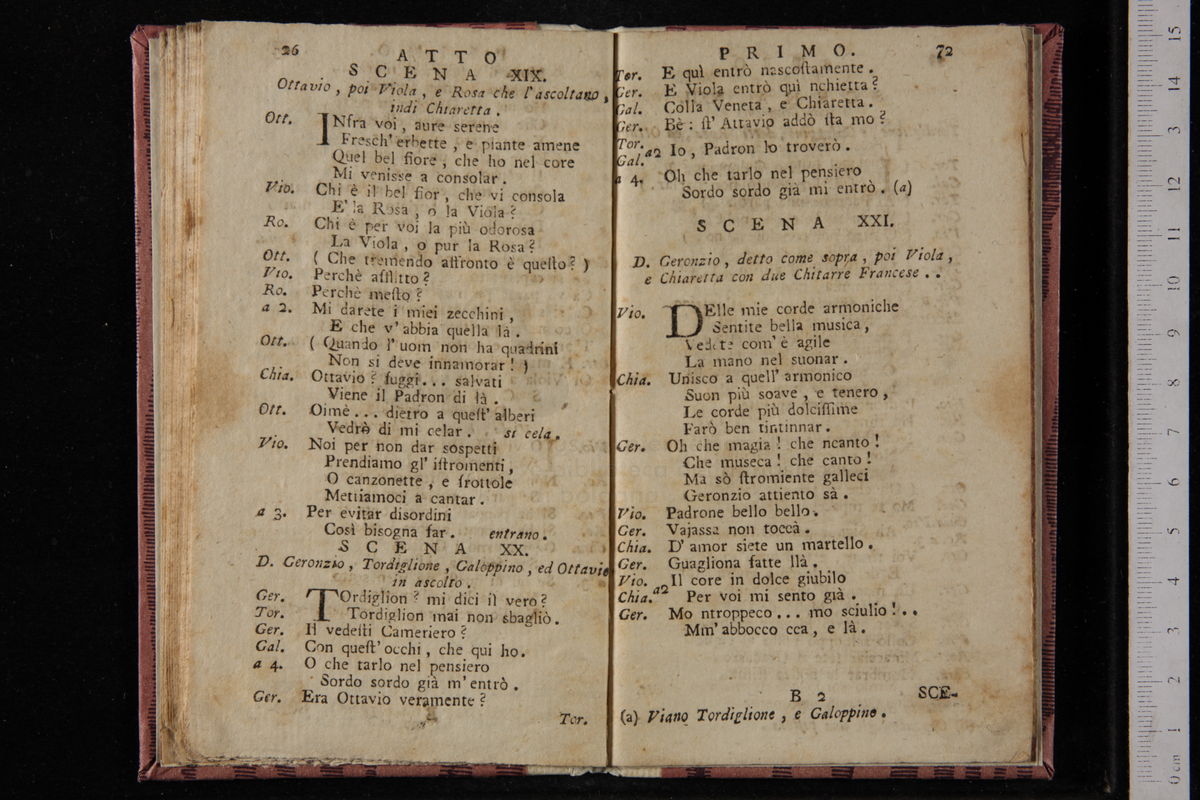 26
ATTO
SCENA XIX.
Ottavio, poi Viola, e Rosa che l'ascoltano,
indi Chiaretta.
Ott. INfra voi, aure serene
Fresch' erbette, e piante amene
Quel bel fiore, che ho nel core
Mi venisse a consolar.
Vio. Chi è il bel fior, che vi consola
E' la Rosa, o la Viola?
Ro. Chi è per voi la più odorosa
La Viola, o pur la Rosa?
Ott. ( Che tremendo affronto è questo? )
Vio. Perchè afflitto?
Ro. Perchè mesto?
a 2. Mi darete i miei zecchini,
E che v'abbia quella là.
Ott. ( Quando l'uom non ha quadrini
Non si deve innamorar! )
Chia. Ottavio? fuggi... salvati
Viene il Padron di là.
Ott. Oimè... dietro a quest' alberi
Vedrò di mi celar. si cela.
Vio. Noi per non dar sospetti
Prendiamo gl' istromenti,
O canzonette, e frottole
Mettiamoci a cantar.
a 3. Per evitar disordini
Così bisogna far. entrano.
SCENA XX.
D. Geronzio, Tordiglione, Galoppino, ed Ottavio
in ascolto.
Ger. TOrdiglion? mi dici il vero?
Tor. Tordiglion mai non sbagliò.
Ger. Il vedesti Cameriero?
Gal. Con quest' occhi, che qui ho.
a 4. O che tarlo nel pensiero
Sordo sordo già m'entrò.
Ger. Era Ottavio veramente?
Tor.
PRIMO. 72
Tor. E quì entrò nascostamente.
Ger. E Viola entrò quì nchietta?
Gal. Colla Veneta, e Chiaretta.
Ger. Bè: st' Attavio addò sta mo?
Tor.
Gal. a2 Io, Padron lo troverò.
a 4. Oh che tarlo nel pensiero
Sordo sordo già mi entrò. (a)
SCENA XXI.
D. Geronzio, detto come sopra, poi Viola,
e Chiaretta con due Chitarre Francese..
Vio. DElle mie corde armoniche
Sentite bella musica,
Vedete com' è agile
La mano nel suonar.
Chia. Unisco a quell' armonico
Suon più soave, e tenero,
Le corde più dolcissime
Farò ben tintinnar.
Ger. Oh che magia! che ncanto!
Che museca! che canto!
Ma sò stromiente galleci
Geronzio attiento sà.
Vio. Padrone bello bello.
Ger. Vajassa non toccà.
Chia. D' amor siete un martello.
Ger. Guagliona fatte llà.
Vio. Il core in dolce giubilo
Chia. a2 Per voi mi sento già.
Ger. Mo ntroppeco... mo sciulio!..
Mm' abbocco cca, e là.
B 2 SCE-
(a) Viano Tordiglione, e Galoppino.
15
14
13
12
11
10
9
8
7
6
5
4
3
2
1
0 cm